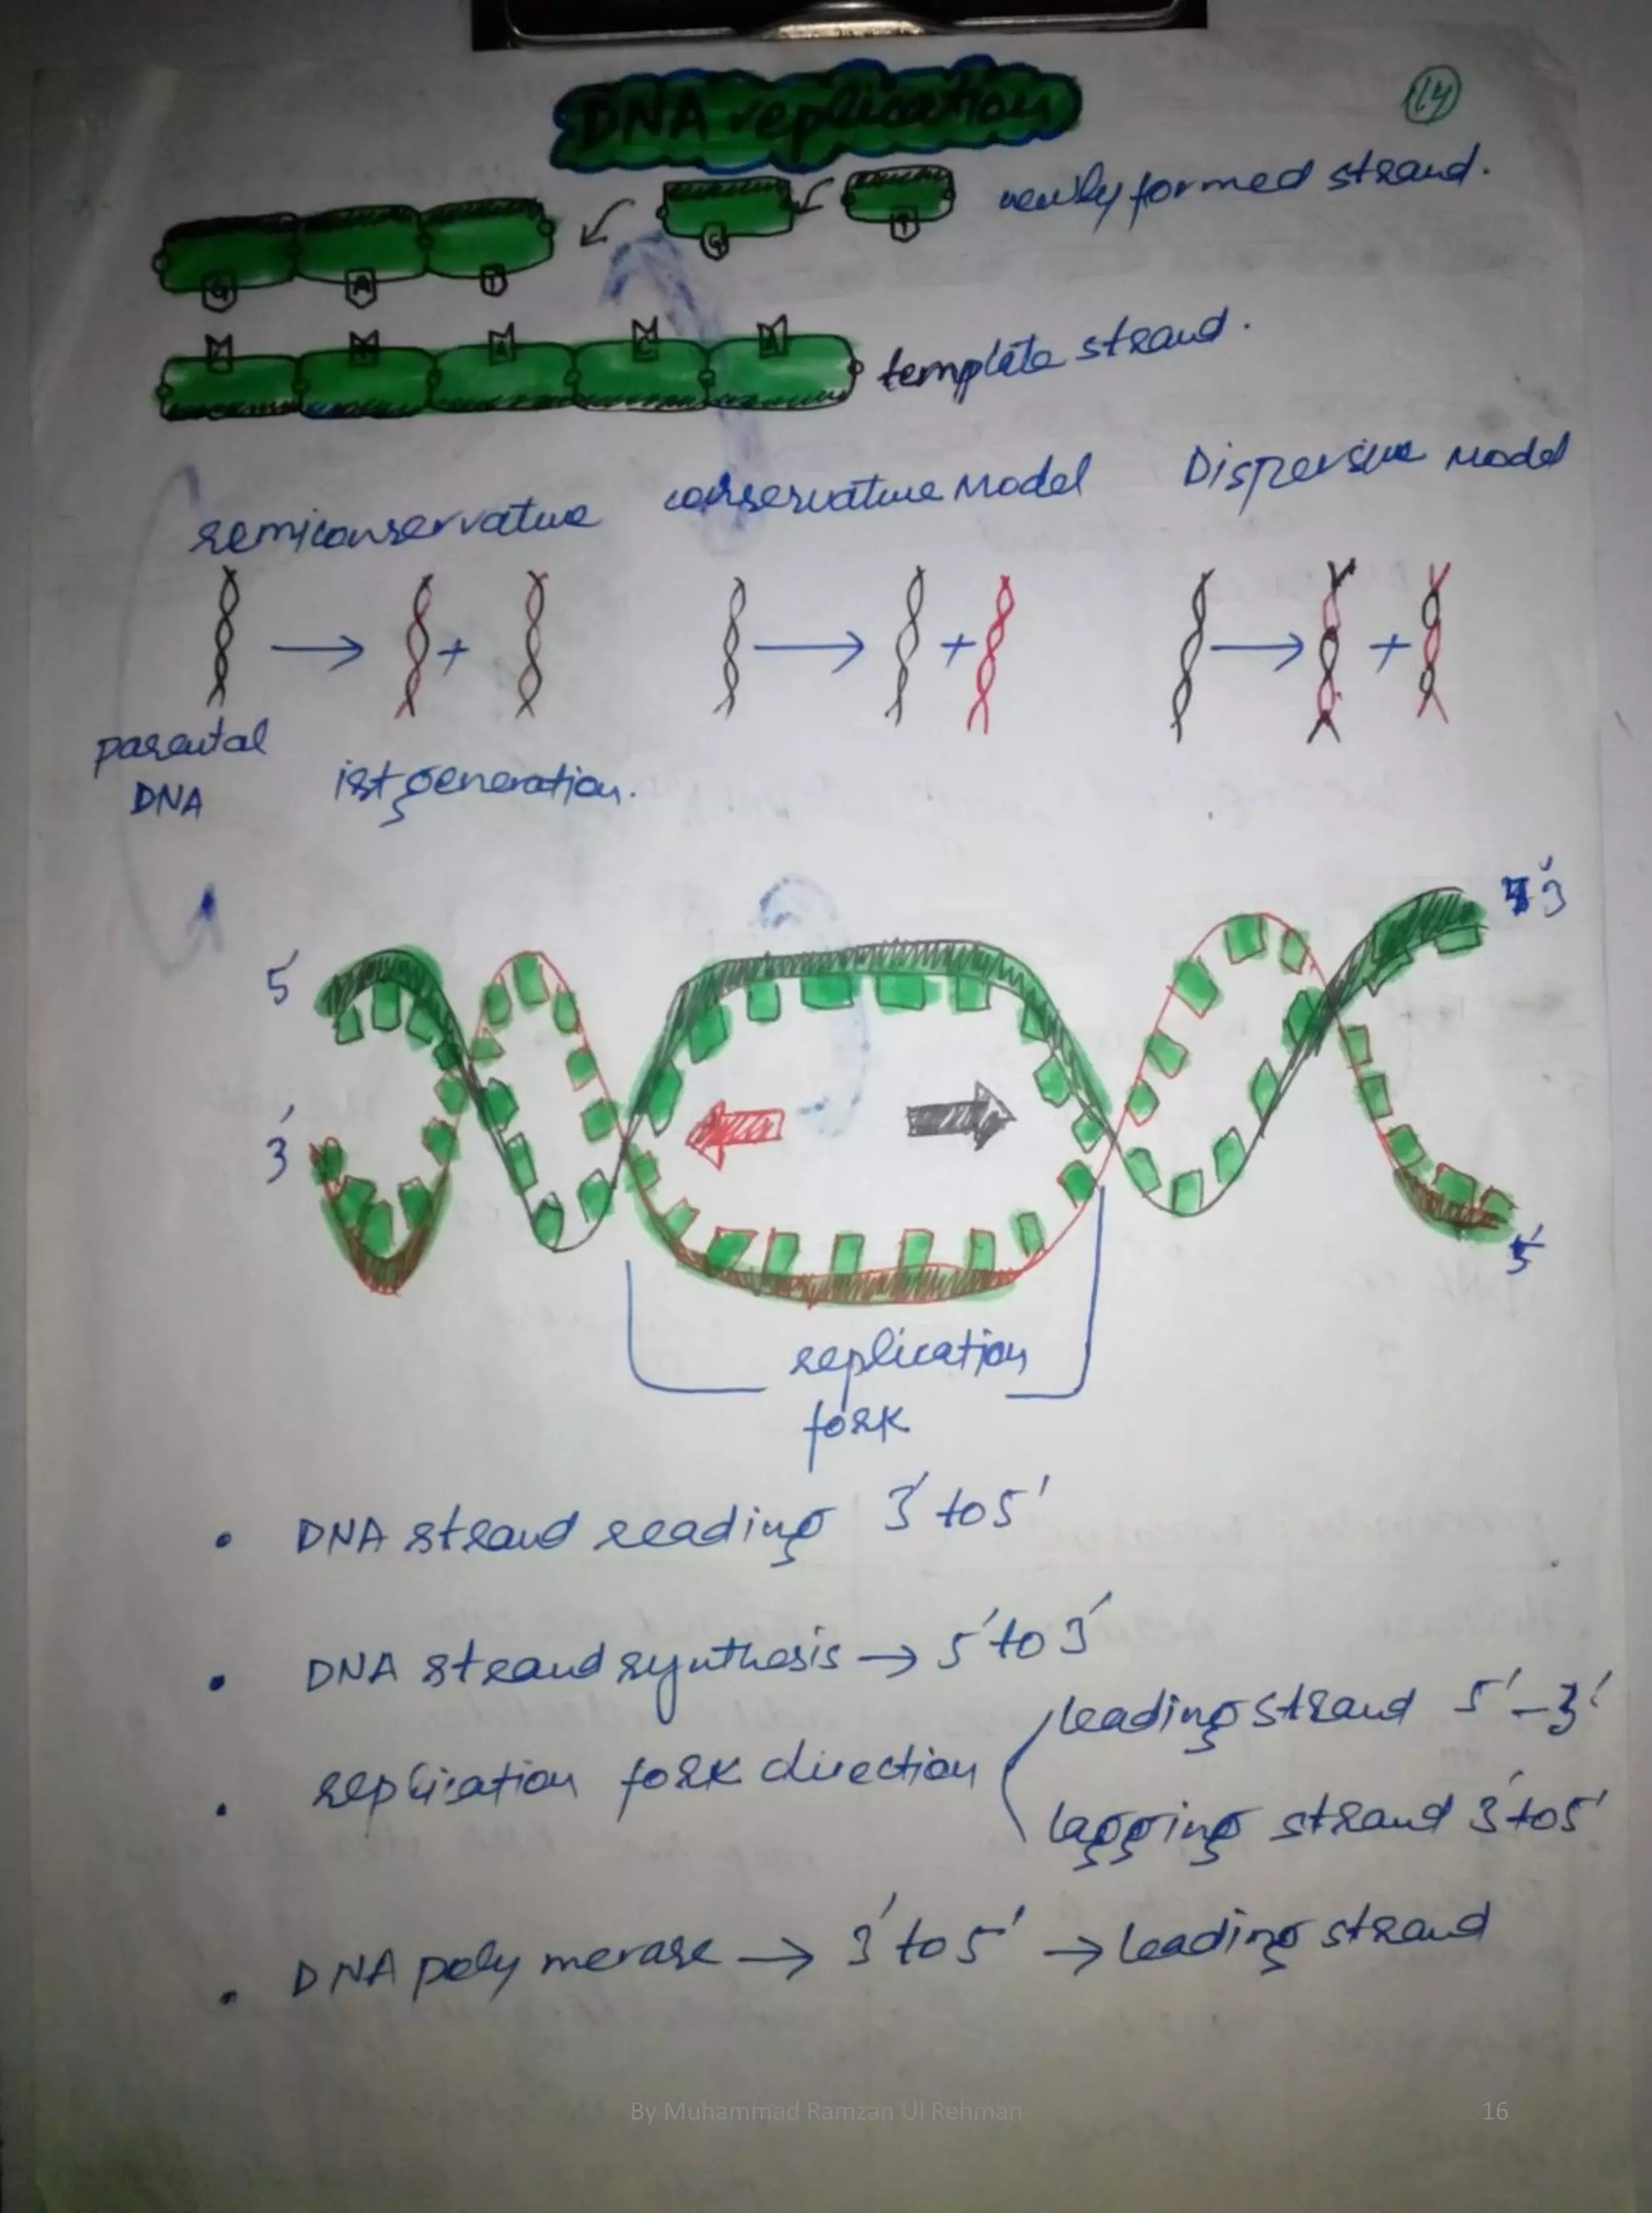 DNA replication
14
newly formed strand.
G A T G T
C T A C A
template strand.
semiconservative conservative Model Dispersive Model
parental
DNA
1st generation.
5' 3'
3' 5'
replication
fork
• DNA strand reading 3' to 5'
• DNA strand synthesis → 5' to 3'
• replication fork direction leading strand 5'-3'
lagging strand 3' to 5'
• DNA poly merase → 3' to 5' → leading strand
By Muhammad Ramzan Ul Rehman 16